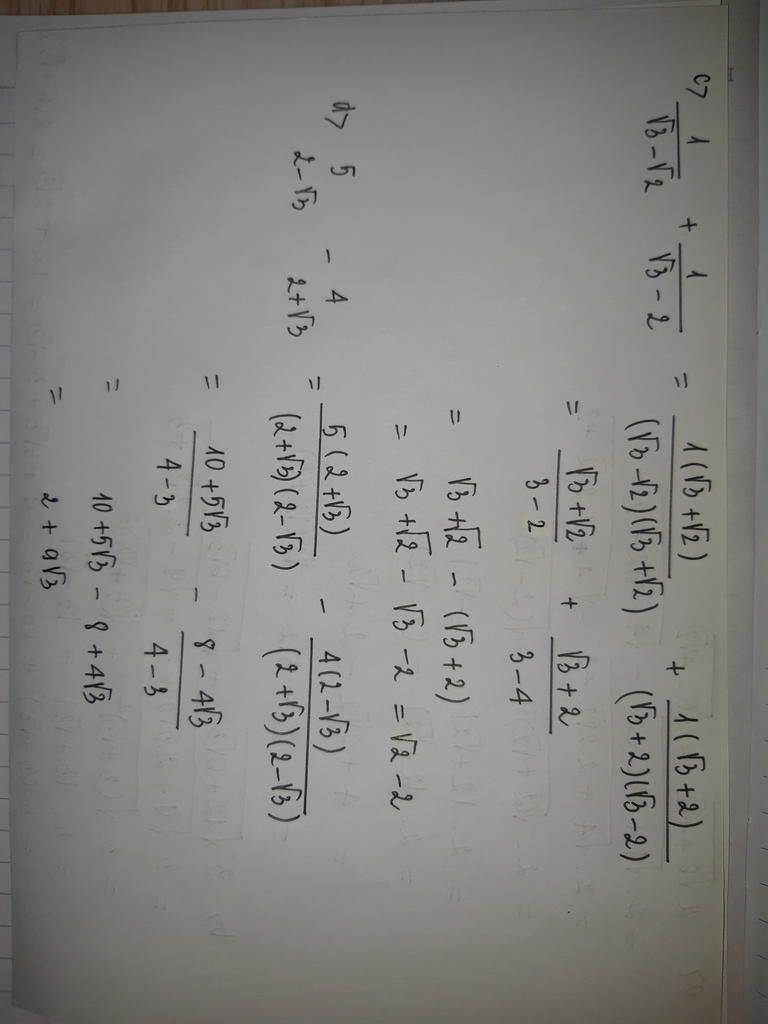 c> 1/(√3-√2) + 1/(√3-2) = 1(√3+√2)/((√3-√2)(√3+√2)) + 1(√3+2)/((√3+2)(√3-2))
= (√3+√2)/(3-2) + (√3+2)/(3-4)
= √3+√2 - (√3+2)
= √3+√2 - √3-2 = √2-2
d> 5/(2-√3) - 4/(2+√3) = 5(2+√3)/((2+√3)(2-√3)) - 4(2-√3)/((2+√3)(2-√3))
= (10+5√3)/(4-3) - (8-4√3)/(4-3)
= 10+5√3 - 8+4√3
= 2+9√3